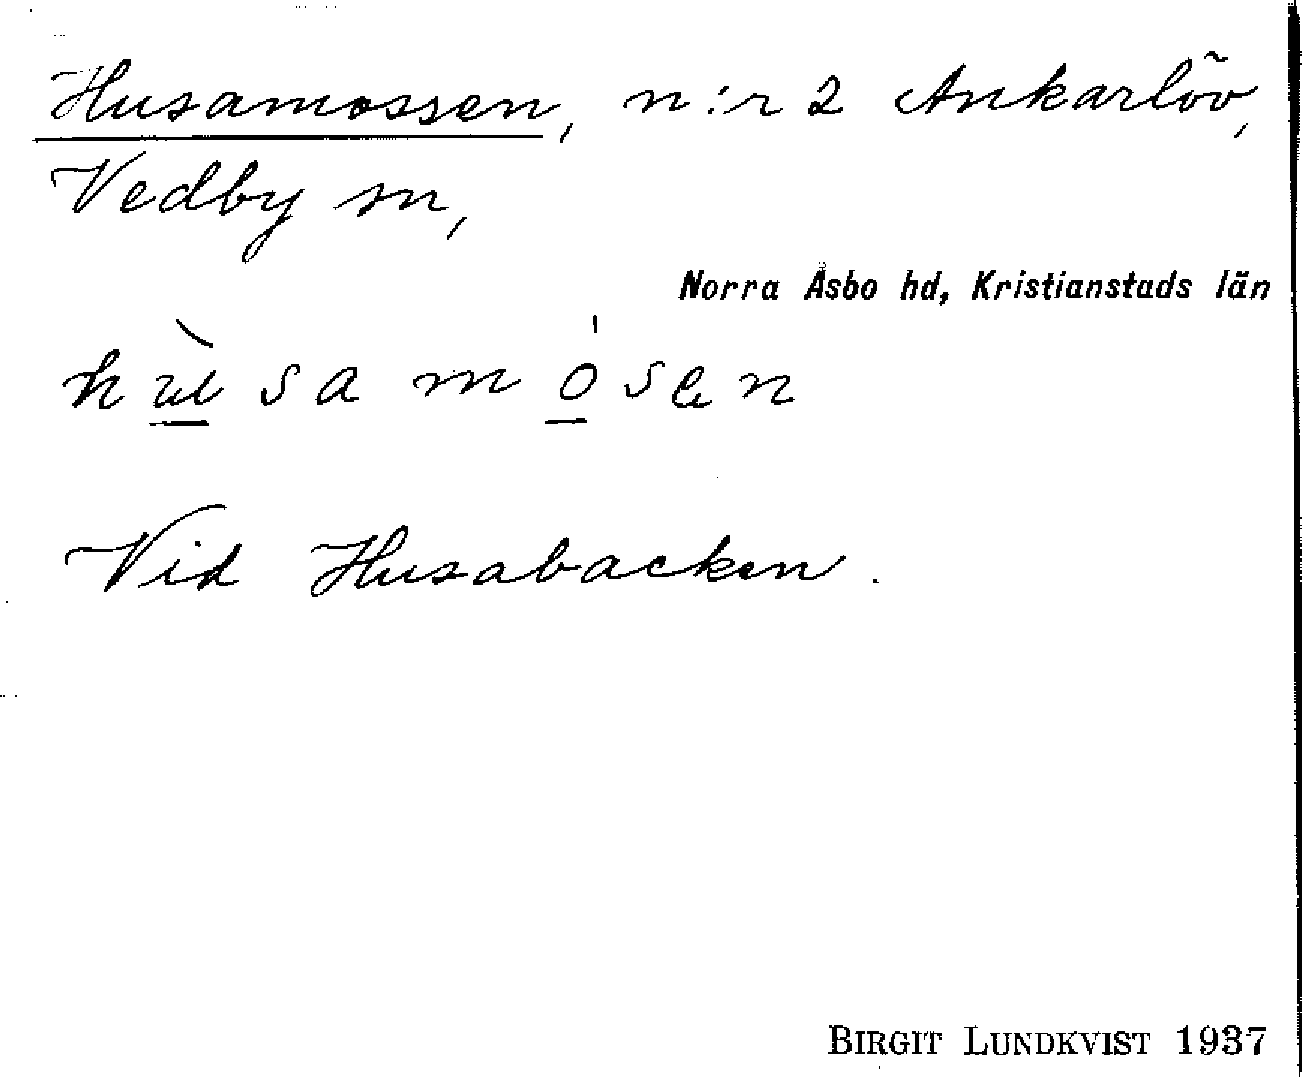 Husamossen, n:r 2 Ankarlöv,
Vedby sn,
Norra Åsbo hd, Kristianstads län
hùsamósen
Vid Husabacken.
BIRGIT LUNDKVIST 1937